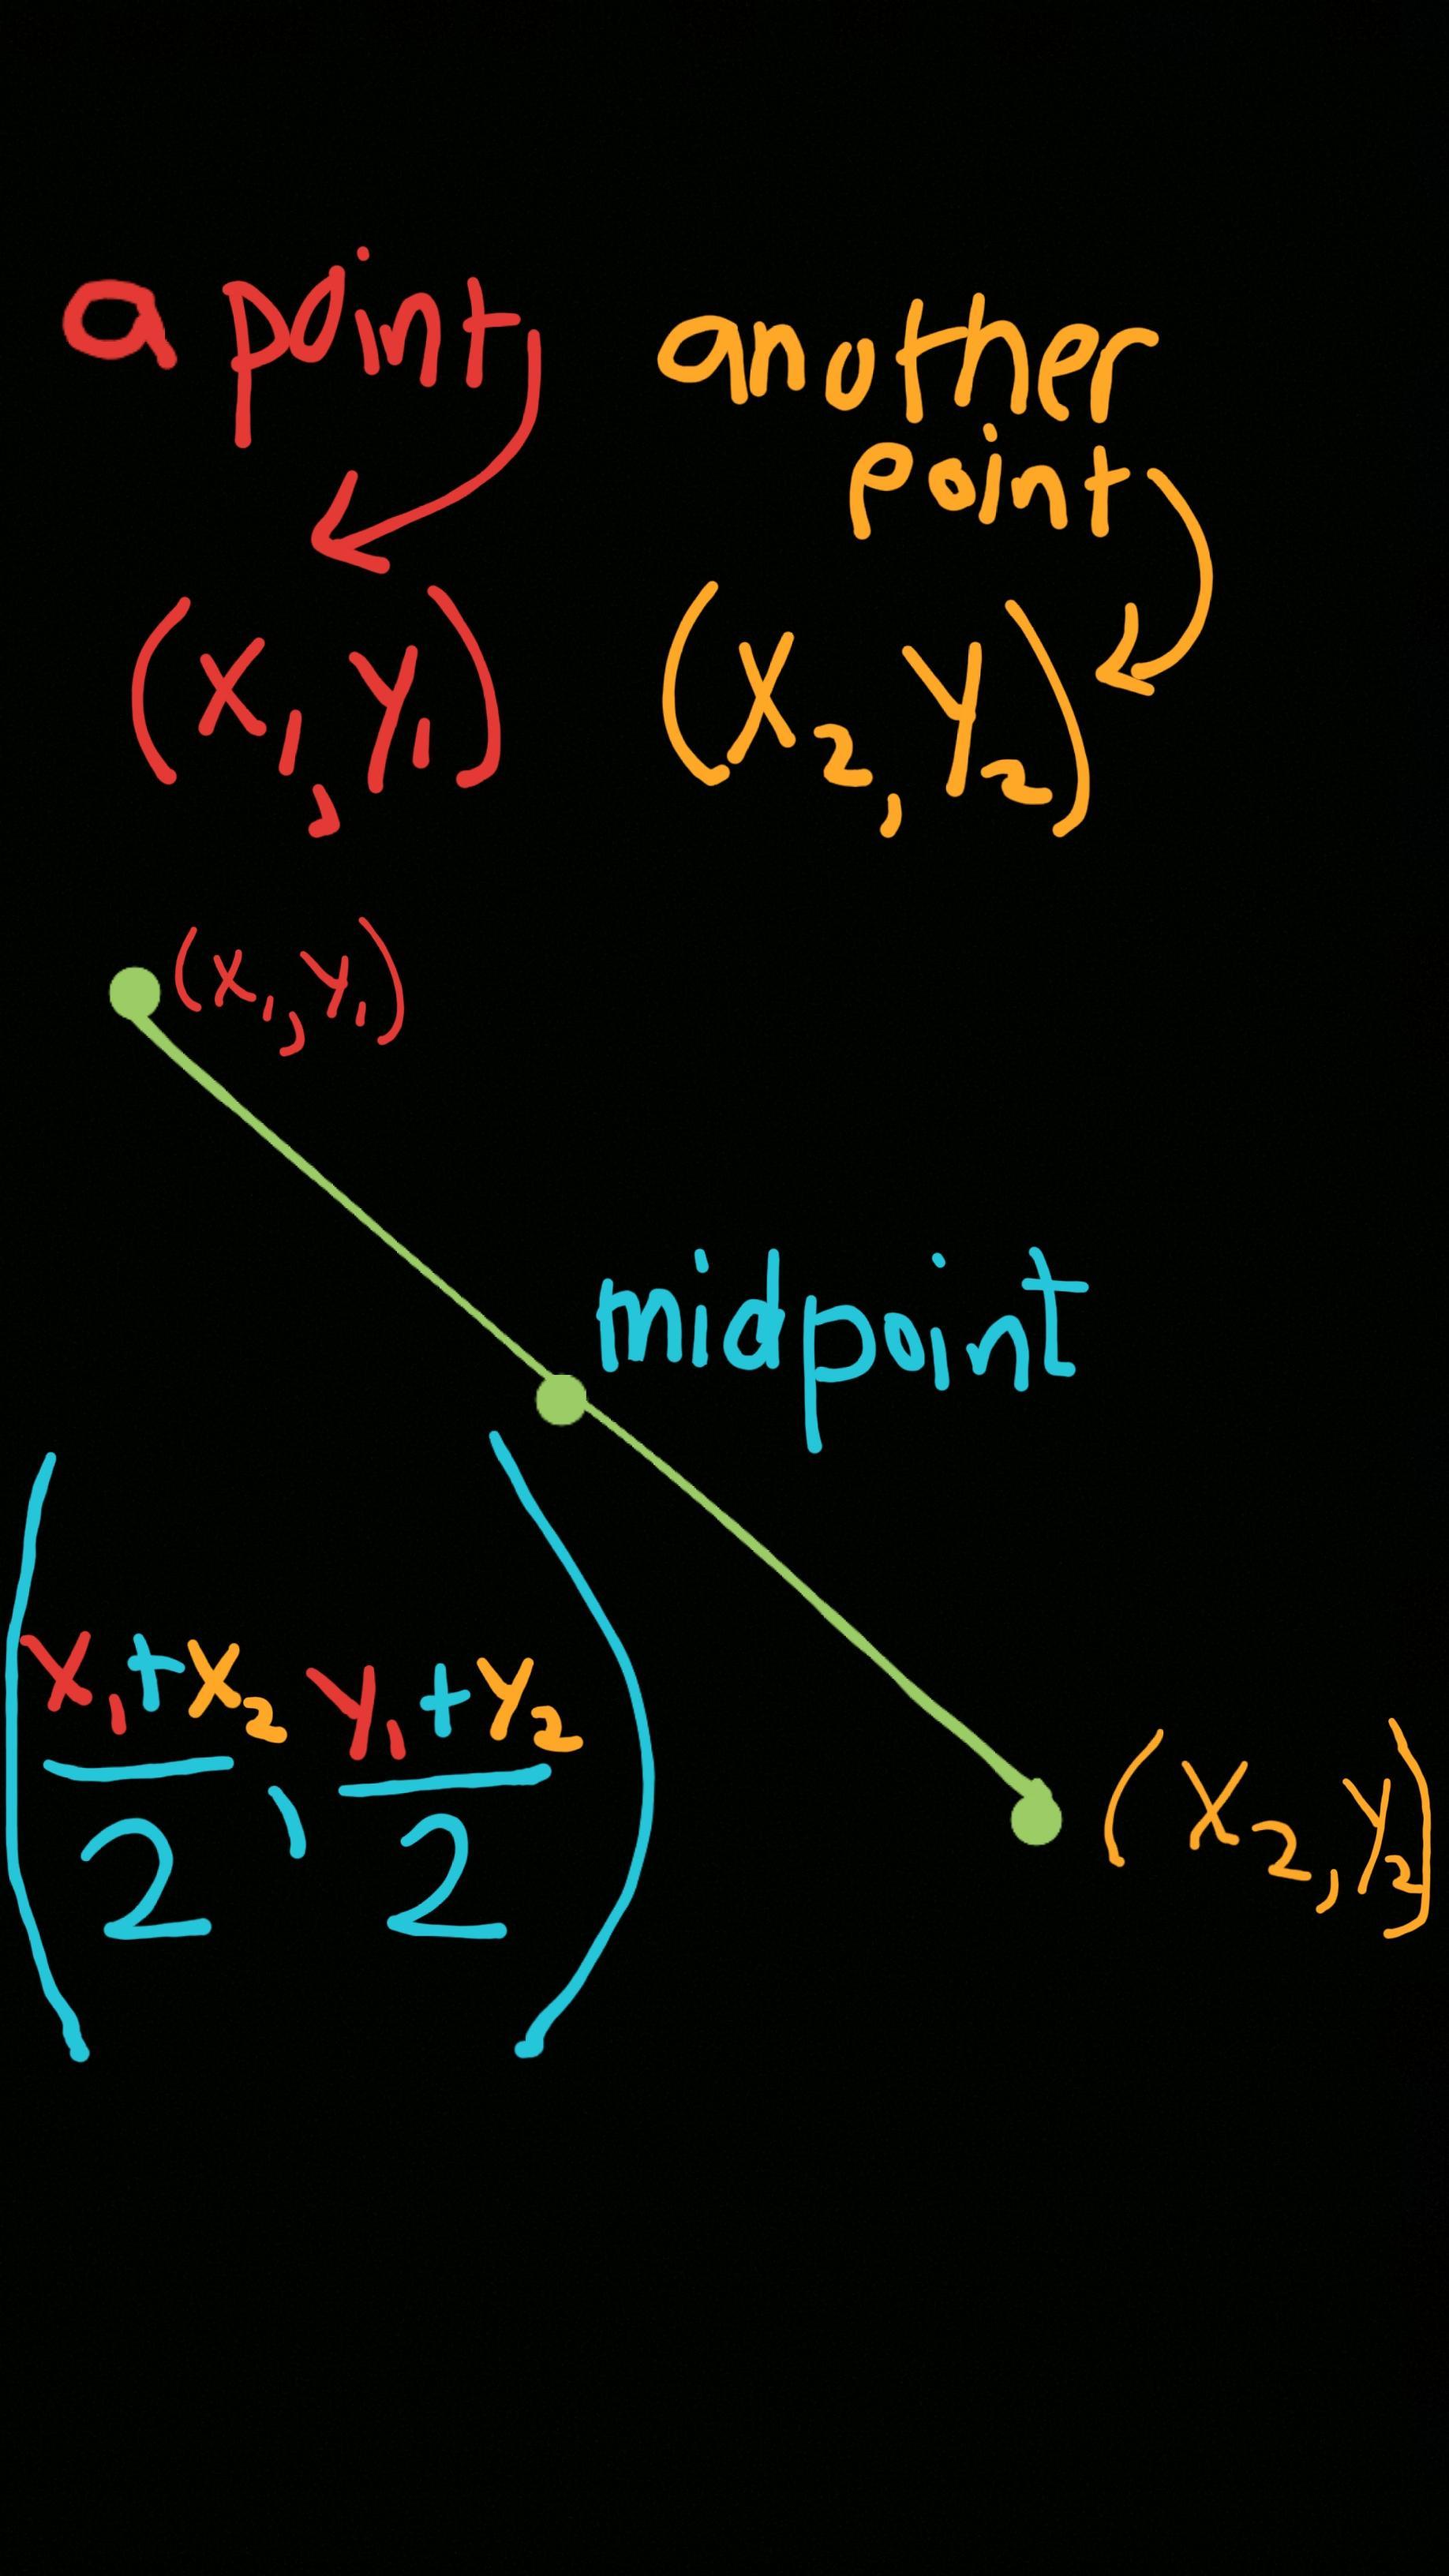 a point
another
point
(x₁, y₁)
(x₂, y₂)
(x₁, y₁)
midpoint
(x₁+x₂/2, y₁+y₂/2)
(x₂, y₂)